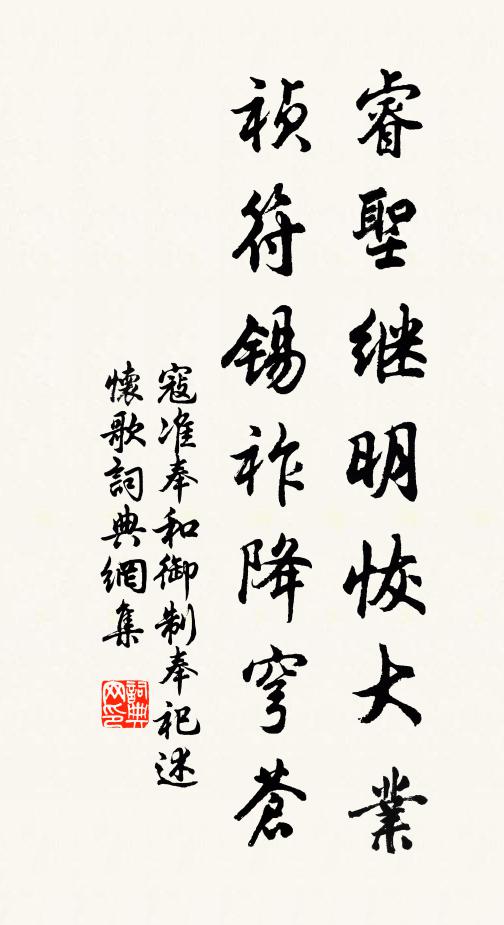 睿聖继明恢大業
祯符锡祚降穹蒼
寇准奉和御制奉祀述
懷歌詞典網集
詞典
网印